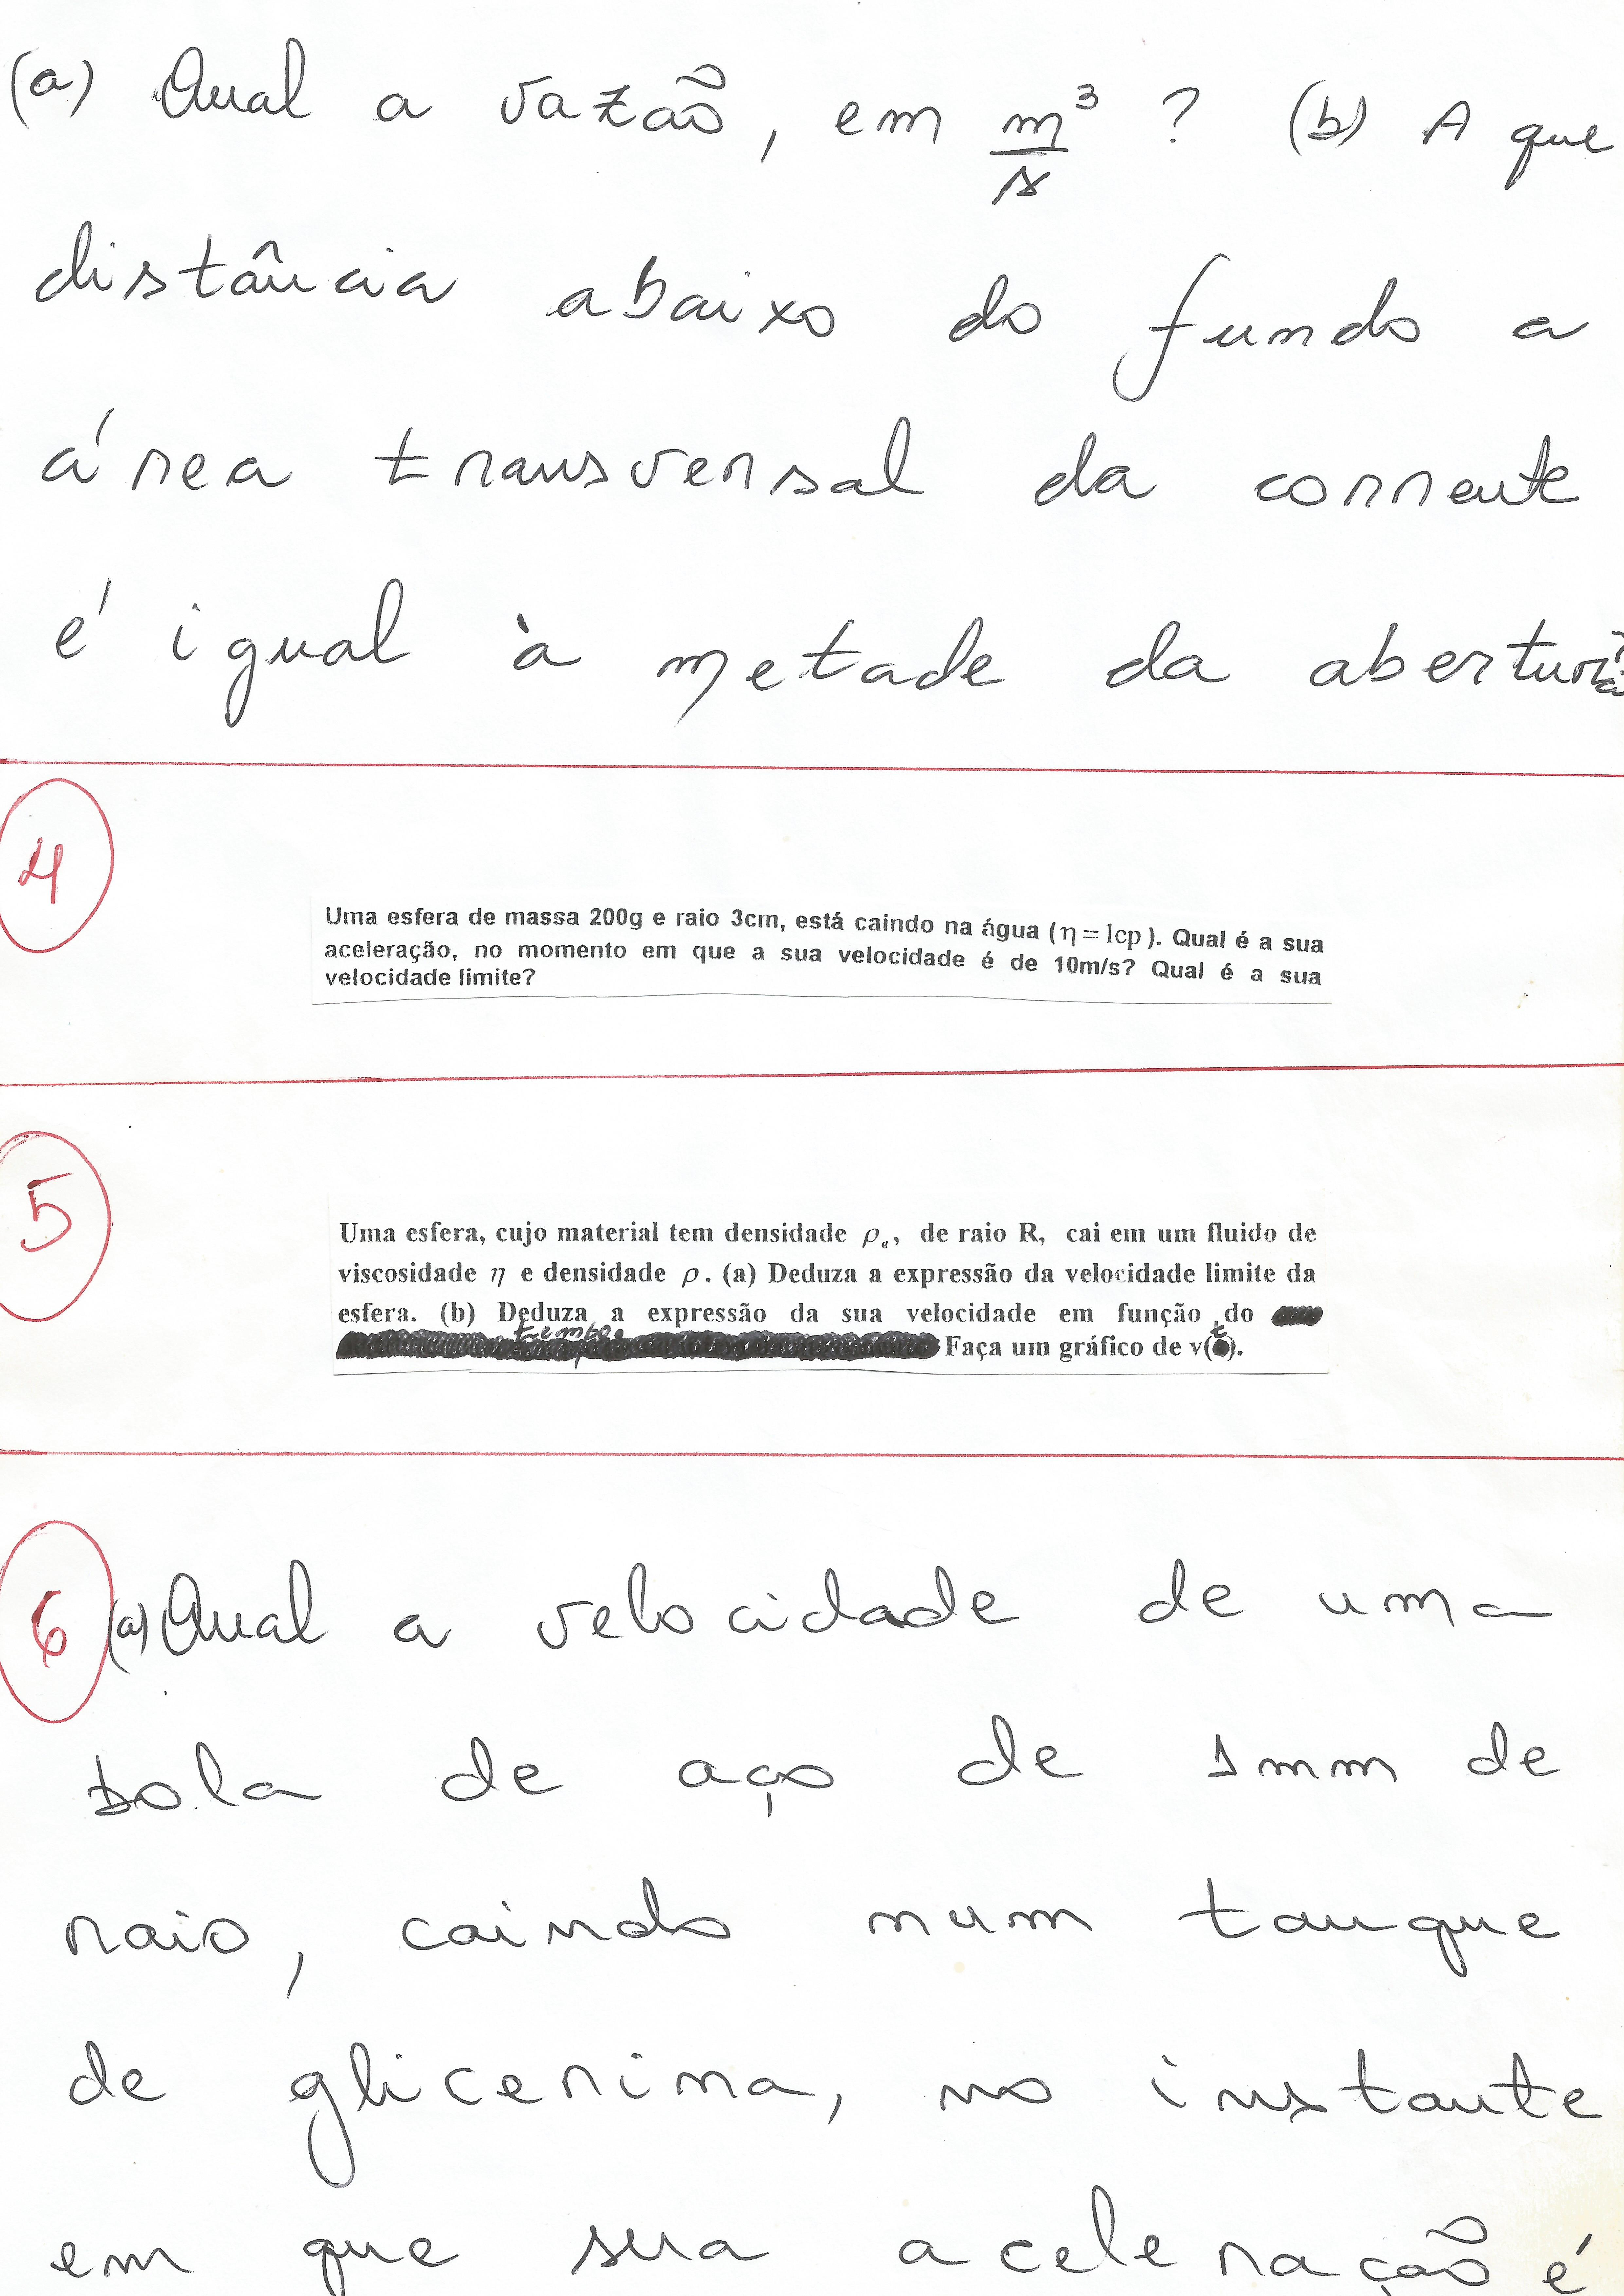 (a) Qual a vazão, em m³/s ? (b) A que
distância abaixo do fundo a
área transversal da corrente
é igual à metade da abertura?
4
Uma esfera de massa 200g e raio 3cm, está caindo na água (η = 1cp). Qual é a sua
aceleração, no momento em que a sua velocidade é de 10m/s? Qual é a sua
velocidade limite?
5
Uma esfera, cujo material tem densidade ρₑ, de raio R, cai em um fluido de
viscosidade η e densidade ρ. (a) Deduza a expressão da velocidade limite da
esfera. (b) Deduza a expressão da sua velocidade em função do
tempo. Faça um gráfico de v(t).
6 (a) Qual a velocidade de uma
bola de aço de 1mm de
raio, caindo num tanque
de glicerina, no instante
em que sua aceleração é